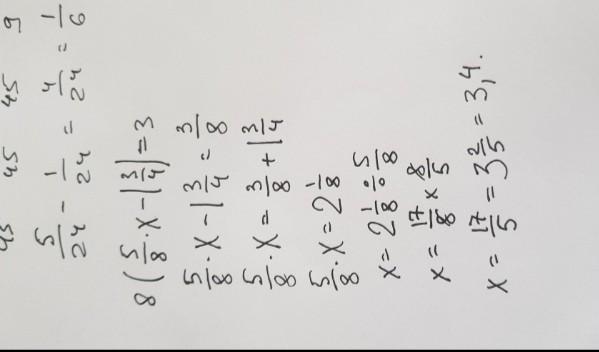 45 45 45 9
5/24 - 1/24 = 4/24 = 1/6
8(5/8·x-1 3/4)=3
5/8·x-1 3/4=3/8
5/8·x=3/8+1 3/4
5/8·x=2 1/8
x=2 1/8÷5/8
x=17/8×8/5
x=17/5=3 2/5=3,4.